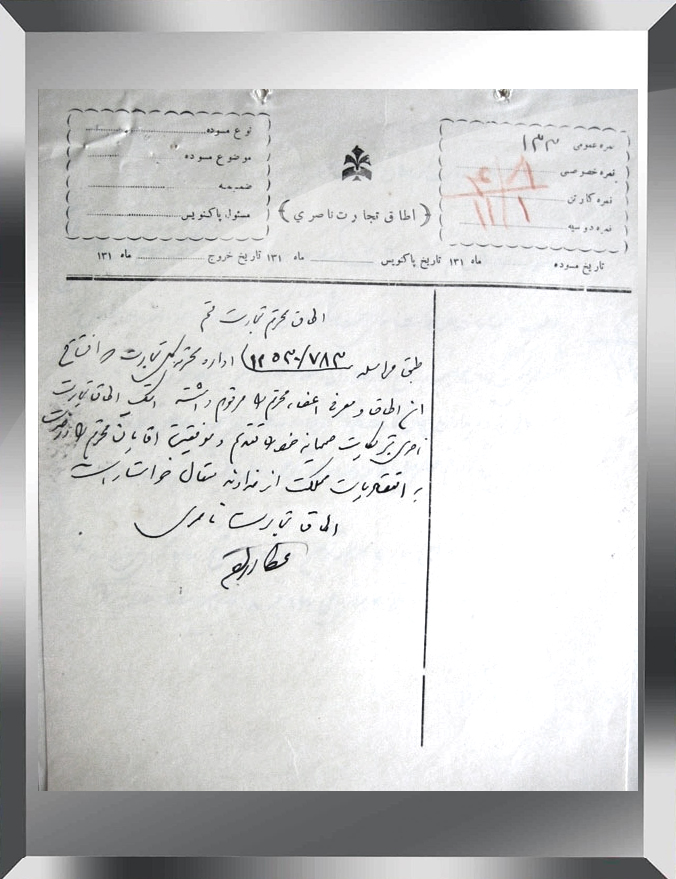 نمره عمومی ۱۳۳
نمره خصوصی
نمره کارتن
نمره دوسیه
﴿ اطاق تجارت ناصري ﴾
نوع مسوده
موضوع مسوده
ضمیمه
مسئول پاکنویس
تاریخ مسوده ماه ۱۳۱ تاریخ پاکنویس ماه ۱۳۱ تاریخ خروج ماه ۱۳۱
اطاق محترم تجارت قم
طبق مراسله ۱۲۵۳۰/۷۸۳ اداره محترم کل تجارت افتتاح
آن اطاق و معرفی اعضاء محترم را مرقوم داشته اینک اطاق تجارت
ناصری تبریکات صمیمانه خود را تقدیم و موفقیت آقایان محترم را در خدمت
به اقتصادیات مملکت از خداوند متعال خواستار است
اطاق تجارت ناصری